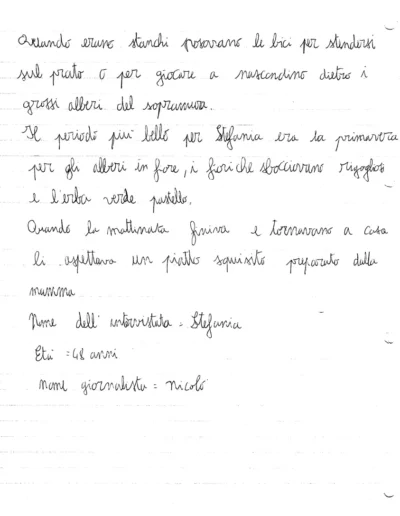 Quando erano stanchi posavano le bici per stendersi
sul prato o per giocare a nascondino dietro i
grossi alberi del sopramura.
Il periodo piu' bello per Stefania era la primavera
per gli alberi in fiore, i fiori che sbocciavano rigogliosi
e l'erba verde pastello.
Quando la mattinata finiva e tornavano a casa
li aspettava un piatto squisito preparato dalla
mamma
Nome dell'intervistata = Stefania
Eta' = 48 anni
nome giornalista = Nicolò